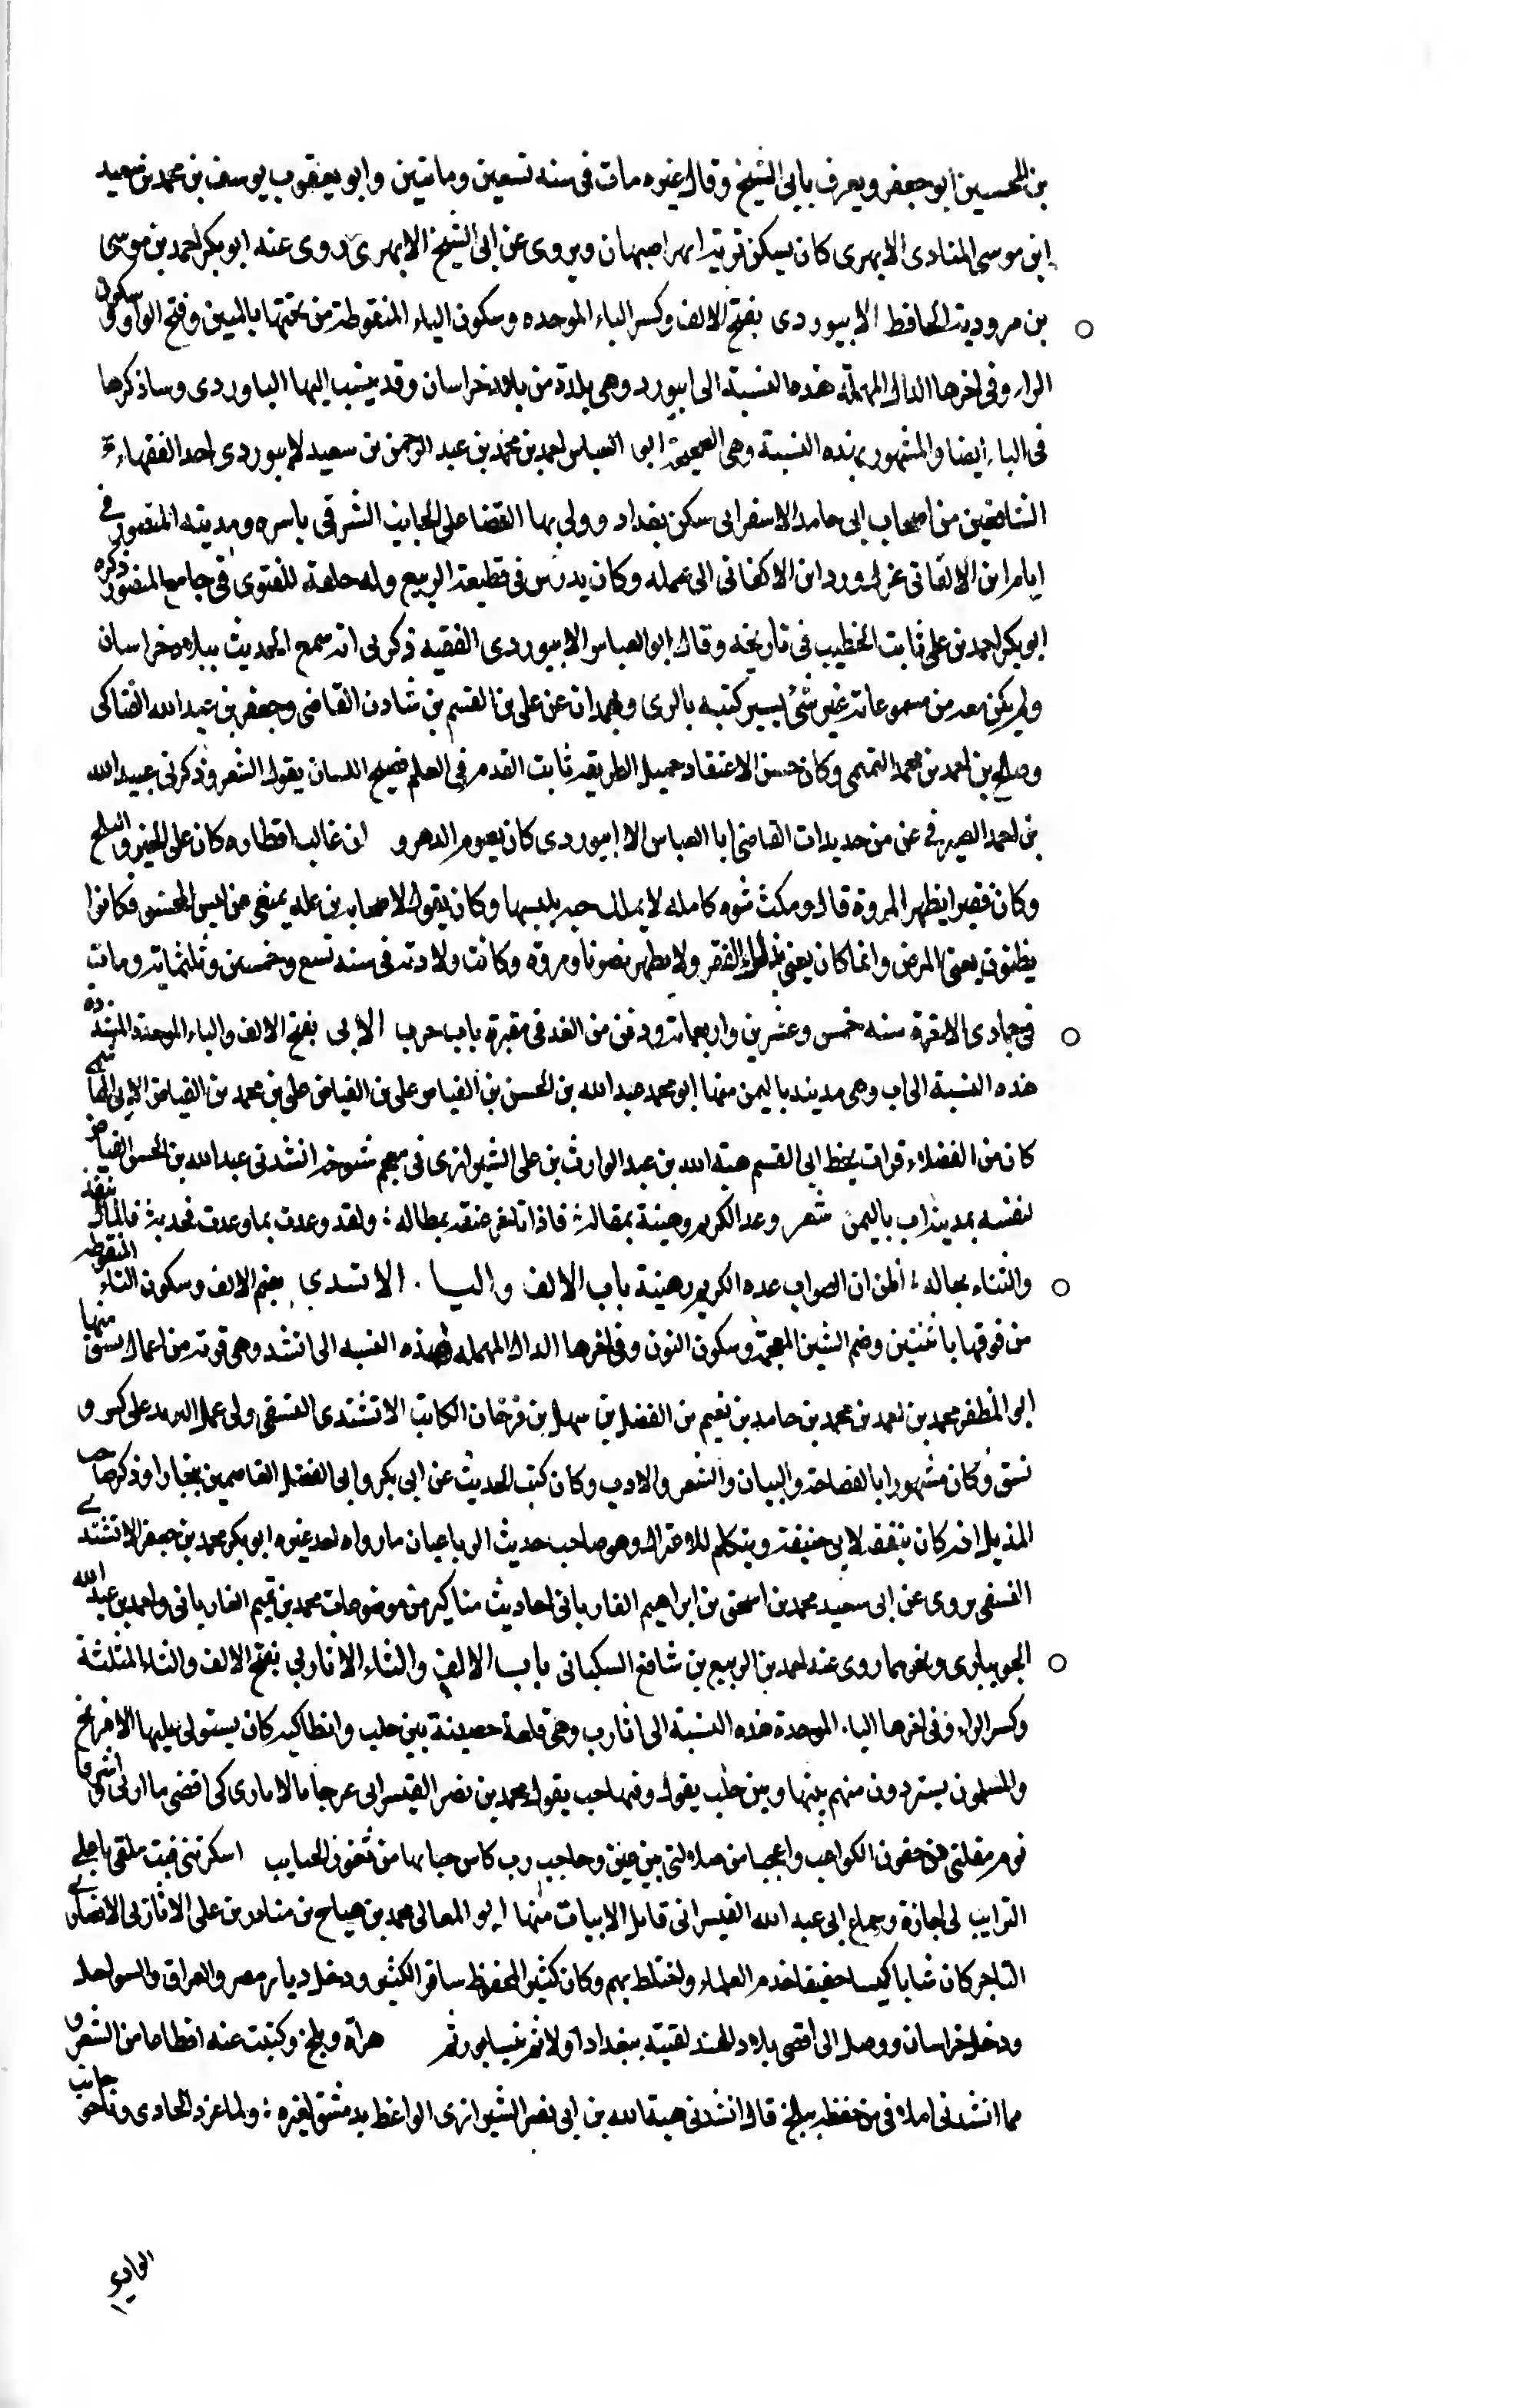 بن الحسين ابو جعفر ويعرف بابي الشيخ وقال غيره مات في سنه تسعين وماتين وابو يعقوب يوسف بن محمد بن سعيد
ابن موسى المنادى الابهرى كان يسكن قرية ابهر اصبهان ويروى عن ابى الشيخ الابهرى روى عنه ابو بكر احمد بن موسى
بن مردويه الحافظ الابيوردى بفتح الالف وكسر الباء الموحده وسكون الياء المنقوطة من تحتها باثنين وفتح الواو وسكون
الراء وفى اخرها الدال المهمله هذه النسبة الى ابيورد وهى بلدة من بلاد خراسان وقد ينسب اليها الباوردى وساذكرها
فى الباء ايضا والمشهور بهذه النسبة وهى الصحيحة ابو العباس احمد بن محمد بن عبد الرحمن بن سعيد الابيوردى احد الفقهاء
الشافعين من اصحاب ابى حامد الاسفراينى سكن بغداد وولى بها القضا على الجانب الشرقى باسره ومدينة المنصور فى
ايام ابن الاكفانى عزل ورد ابن الاكفانى الى عمله وكان يدرس فى قطيعة الربيع وله حلقة للفتوى فى جامع المنصور ذكره
ابو بكر احمد بن على ثابت الخطيب فى تاريخه وقال ابو العباس الابيوردى الفقيه ذكر لى انه سمع الحديث ببلاد خراسان
ولم يكن معه من مسموعاته غير شئ يسير كتبه بالرى وبهمدان عن على بن القسم بن شاذن القاضى وجعفر بن عبد الله الفناكى
وصالح بن احمد بن محمد التميمى وكان حسن الاعتقاد جميل الطريقه ثابت القدم فى العلم فصيح اللسان يقول الشعر وذكر لى عبيد الله
بن احمد الصيرفى عن من حديدات القاضى ابا العباس الابيوردى كان يصوم الدهر و ان غالب افطاره كان على الخبز والملح
وكان فقيرا يظهر المروة قال ومكث شتوه كامله لا يملك جبه يلبسها وكان يقول لاصحابه بى عله تمنعنى من لبس المحشو فكانوا
يظنونه يعنى المرض وانما كان يعنى بذلك الفقر ولا يظهر تصونا ومروة وكانت ولادته فى سنه تسع وخمسين وثلثماية ومات
فى جمادى الاخرة سنه خمس وعشرين واربعمائة ودفن من الغد فى مقبرة باب حرب الابى بفتح الالف والباء الموحدة المشدده
هذه النسبة الى اب وهى مدينة باليمن منها ابو محمد عبد الله بن الحسن بن الفياض على بن الفياض على بن محمد بن الفياض الابى الهاشمى
كان من الفضلاء قرات بخط ابى القسم هبة الله بن عبد الوارث بن على الشيرازى فى معجم شيوخه انشدنى عبد الله بن الحسن الفياض
لنفسه بمدينة اب باليمن شعر وعد الكريم وهينة بمقاله فاذا تاخر عنقه بمطاله : ولقد وعدت بما وعدت بحديث فالمال ينفد
والثناء بحاله : اظن ان الصواب عده الكريم رهينة باب الالف والتا . الاتشدى بضم الالف وسكون التاء المنقوطه
من فوقها باثنتين وضم الشين المعجمة وسكون النون وفى اخرها الدال المهمله هذه النسبه الى اتشند وهى قرية من اعمال نسف منها
ابو المظفر محمد بن احمد بن محمد بن حامد بن نعيم بن الفضل بن سهل بن فرخان الكاتب الاتشندى النسفى ولى عمل البريد على كس و
نسق وكان مشهورا بالفصاحة والبيان والشعر والادب وكان كتب الحديث عن ابى بكر وابى الفضل القاصمين ببخارا وذكر صاحب
المذيل انه كان يتفقه لابى حنيفة ويتكلم للاعتزال وهو صاحب حديث الرباعيان ما رواه احد غيره ابو بكر محمد بن جعفر الاتشندى
النسفى يروى عن ابى سعيد محمد بن اسحق بن ابراهيم الفاريابى احاديث مناكير من موضوعات محمد بن تميم الفاريابى واحمد بن عبد الله
الجويبارى ونحوهما روى عنه احمد بن الربيع بن شافع السكبانى باب الالف والثاء الاثاربى بفتح الالف والثاء المثلثة
وكسر الراء وفى اخرها الباء الموحدة هذه النسبة الى اثارب وهى قلعة حصينة بين حلب وانطاكيه كان يستولى عليها الافرنج
والمسلمون يستردون منهم بينها وبين حلب يقول وفيها حب يقول محمد بن نصر القيسرانى عرجا بالاثاربى كى اقضى ماربى اسرقا
نوم مقلتى من جفون الكواعب واعجبا من ضلالتى بين عين وحاجب رب كاس حبابها من ثغور الحبايب اسكرتنى فبت ملقى باعلى
الترايب لى اجازة وسماع ابى عبد الله القيسرانى قايل الابيات منها ابو المعالى محمد بن هياج بن مبادر بن على الاثاربى الانصارى
التاجر كان شابا كيسا خفيفا خدم العلماء واختلط بهم وكان كثير المحفوظ سافر الكثير ودخل ديار مصر والعراق والسواحل
ودخل خراسان ووصل الى اقصى بلاد الهند لقيته ببغداد اولا ثم بنيسابور ثم هراة وبلخ وكتبت عنه اقطاعا من الشعر و
مما انشدنى املاء فى من حفظه ببلخ قال انشدنى هبة الله بن ابى نصر الشيرازى الواعظ بدمشق لغيره : ولما غرد الحادى وناحو جانب
الوادى